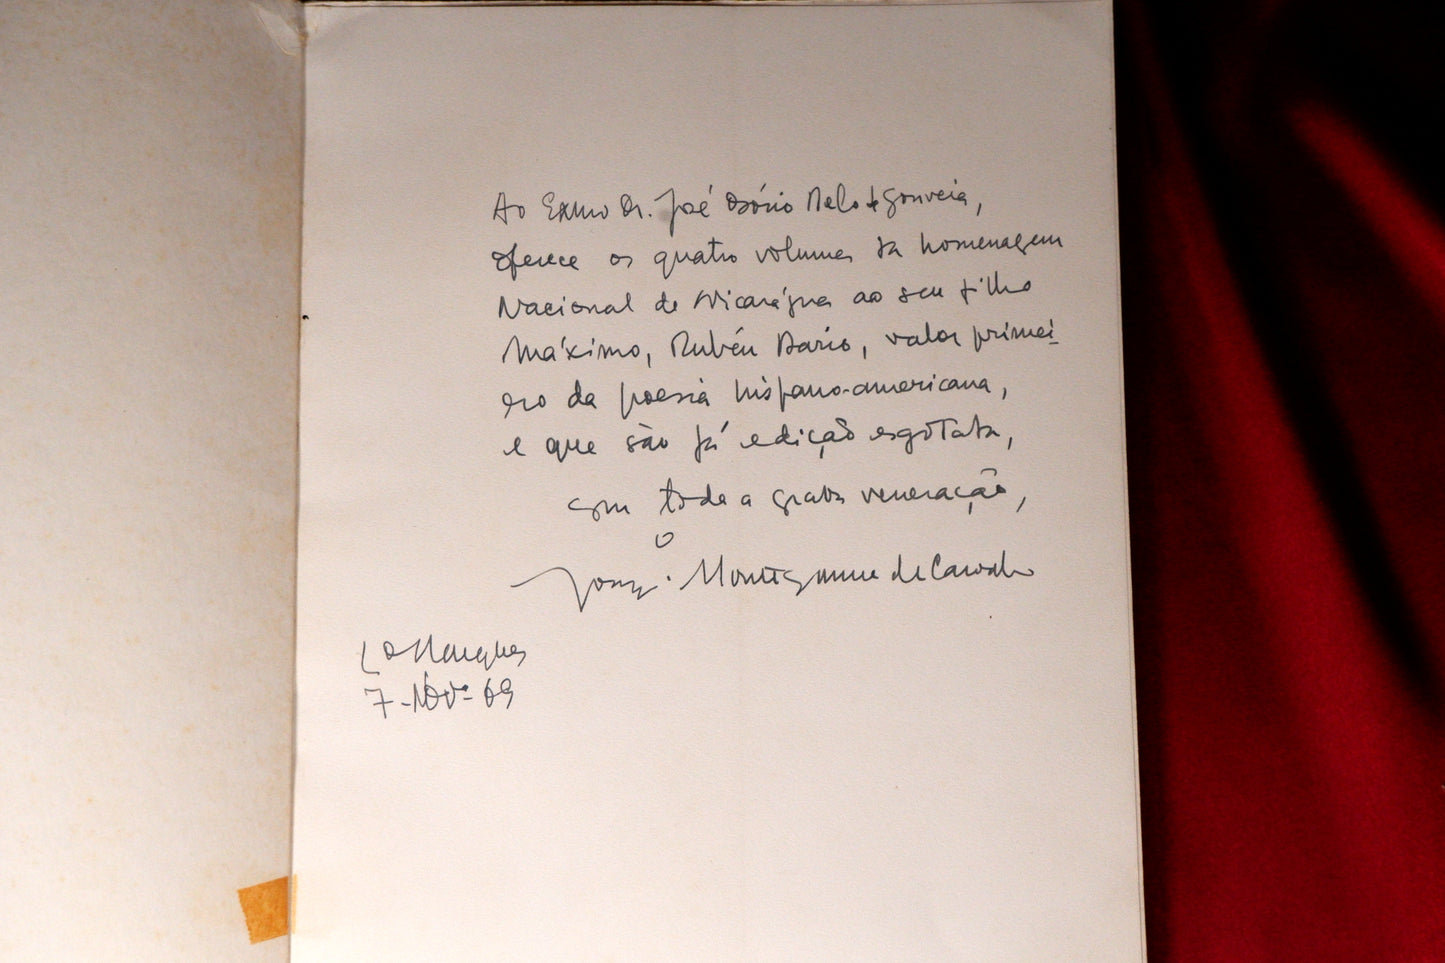 Ao Exmo Dr. José Osório Melo de Gouveia,
oferece os quatro volumes da homenagem
Nacional de Nicarágua ao seu filho
Máximo, Rubén Dario, valor primei-
ro da poesia hispano-americana,
e que são já edição esgotada,
com toda a grata veneração,
O
Montezuma de Carvalho
L. Marques
7-Nov.º 69